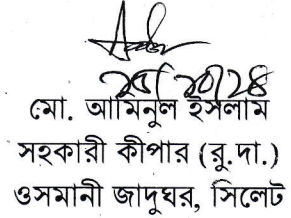 ২৩/১০/২৪
মো. আমিনুল ইসলাম
সহকারী কীপার (রু.দা.)
ওসমানী জাদুঘর, সিলেট